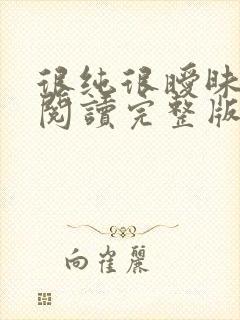 很纯很曖昧
閱讀完整版
向崔麗